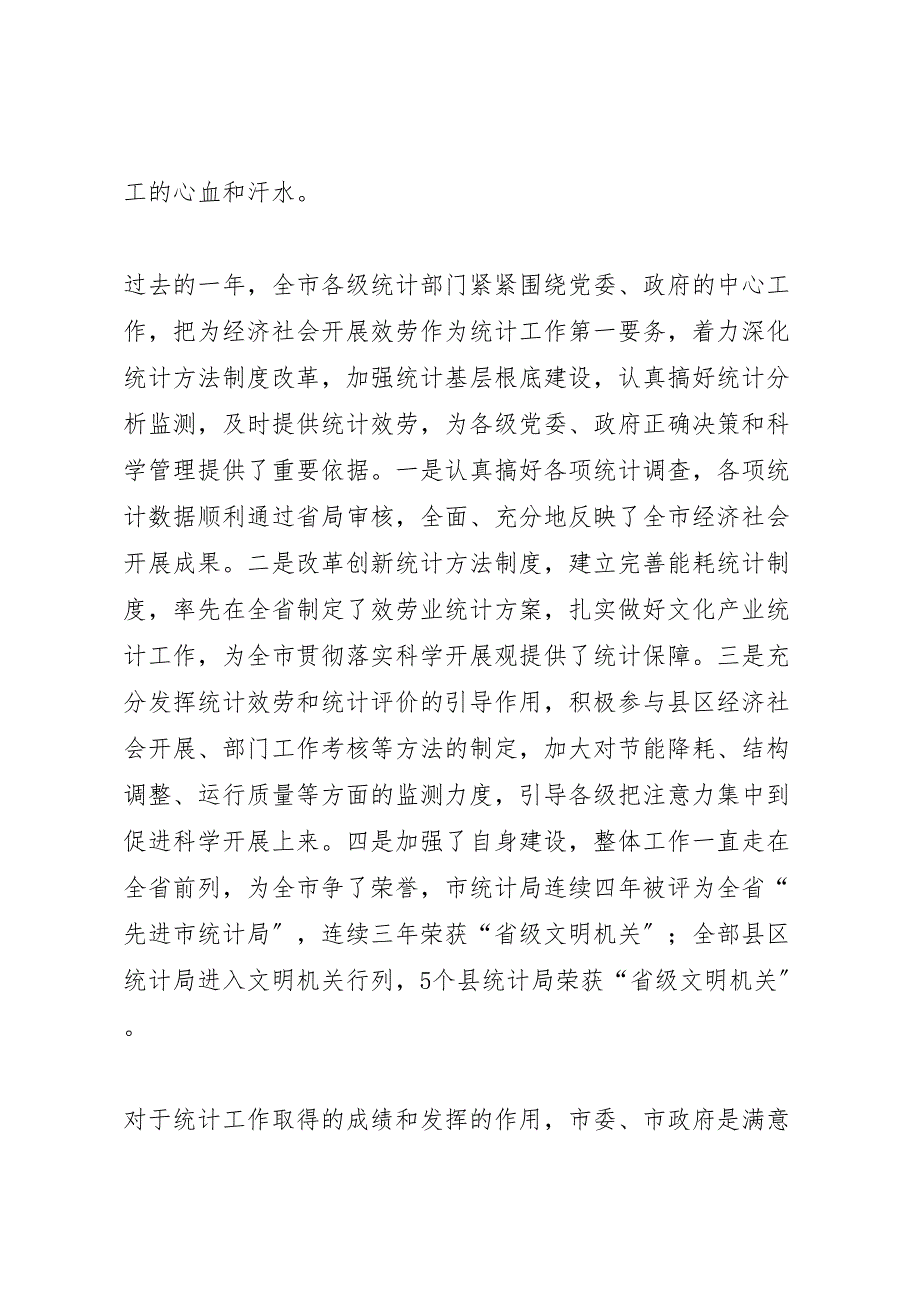 工的心血和汗水。
过去的一年，全市各级统计部门紧紧围绕党委、政府的中心工
作，把为经济社会开展效劳作为统计工作第一要务，着力深化
统计方法制度改革，加强统计基层根底建设，认真搞好统计分
析监测，及时提供统计效劳，为各级党委、政府正确决策和科
学管理提供了重要依据。一是认真搞好各项统计调查，各项统
计数据顺利通过省局审核，全面、充分地反映了全市经济社会
开展成果。二是改革创新统计方法制度，建立完善能耗统计制
度，率先在全省制定了效劳业统计方案，扎实做好文化产业统
计工作，为全市贯彻落实科学开展观提供了统计保障。三是充
分发挥统计效劳和统计评价的引导作用，积极参与县区经济社
会开展、部门工作考核等方法的制定，加大对节能降耗、结构
调整、运行质量等方面的监测力度，引导各级把注意力集中到
促进科学开展上来。四是加强了自身建设，整体工作一直走在
全省前列，为全市争了荣誉，市统计局连续四年被评为全省“
先进市统计局〞，连续三年荣获“省级文明机关〞；全部县区
统计局进入文明机关行列，5个县统计局荣获“省级文明机关〞
。
对于统计工作取得的成绩和发挥的作用，市委、市政府是满意